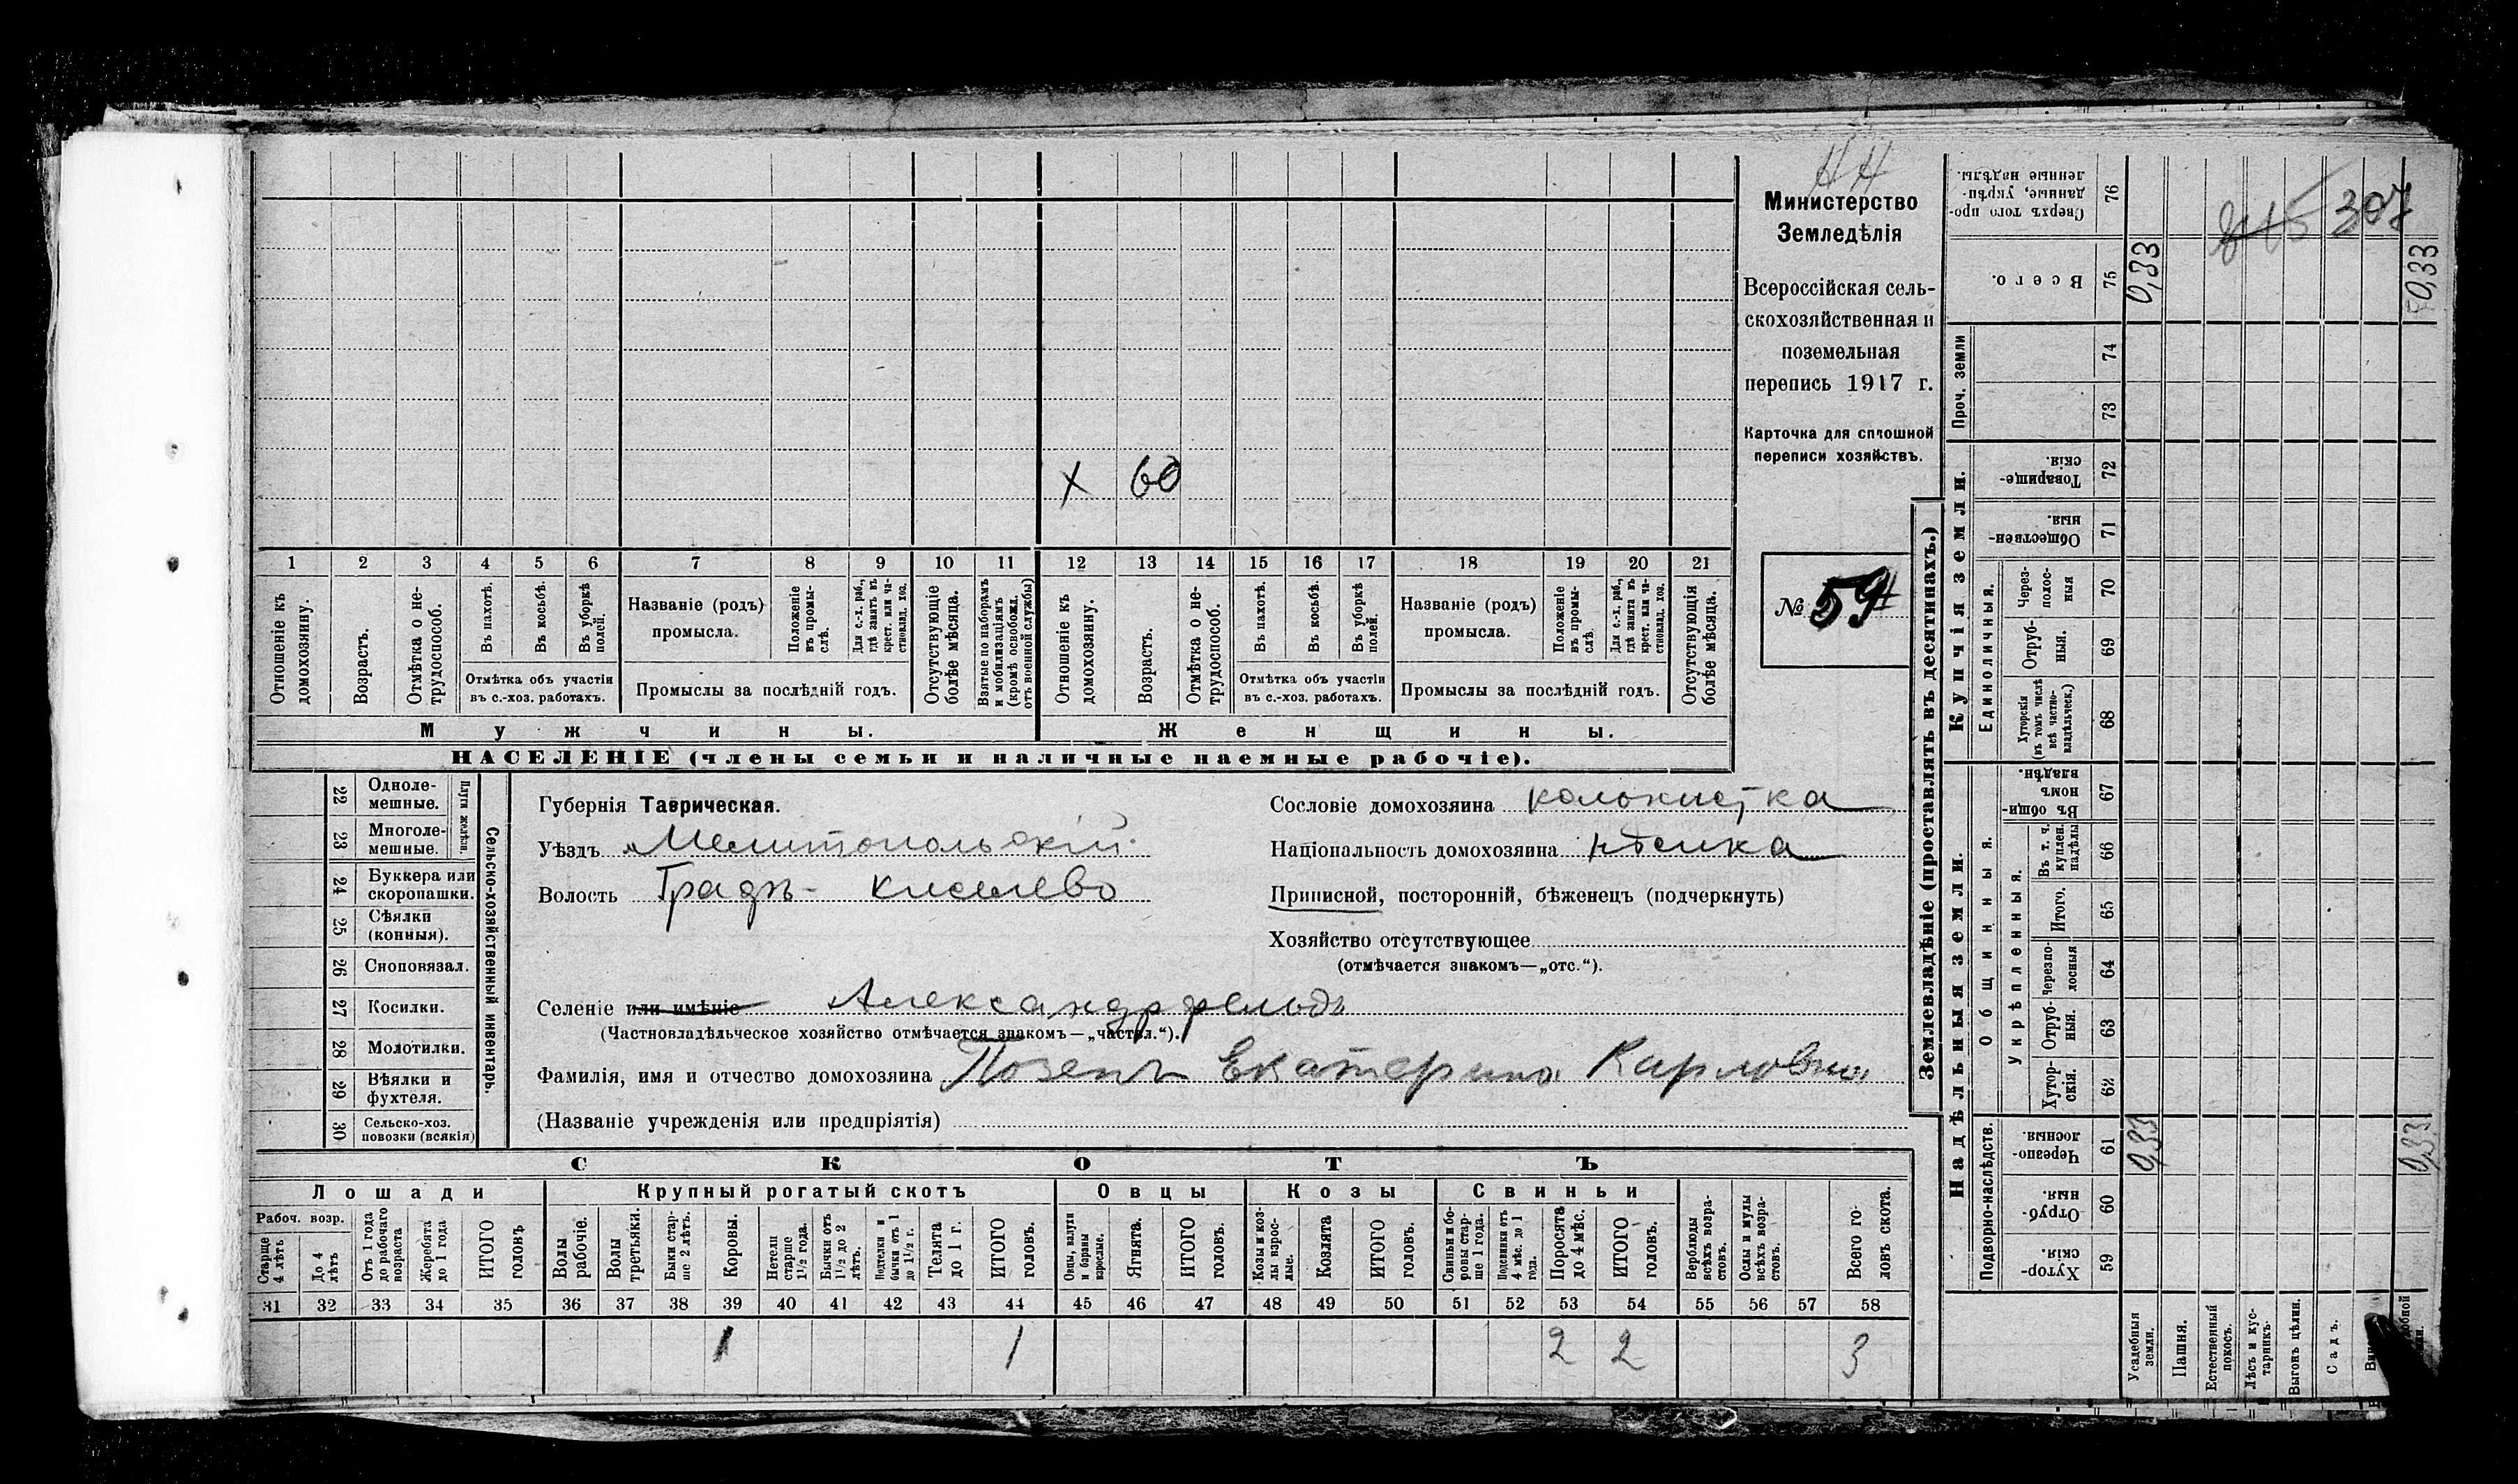 НН
Министерство
Земледѣлія
Всероссійская сель-
скохозяйственная и
поземельная
перепись 1917 г.
Карточка для сплошной
переписи хозяйствъ.
№ 59
х 60
1 2 3 4 5 6 7 8 9 10 11 12 13 14 15 16 17 18 19 20 21
Отношеніе къ домохозяину.
Возрастъ.
Отмѣтка о не-трудоспособ.
Въ пахотѣ.
Въ косьбѣ.
Въ уборкѣ полей.
Отмѣтка объ участіи
въ с.-хоз. работахъ.
Названіе (родъ)
промысла.
Положеніе въ промы-слѣ.
Для с.-х. раб., гдѣ занятъ въ крест. или ча-стновлад. хоз.
Промыслы за послѣдній годъ.
Отсутствующіе болѣе мѣсяца.
Взятые по наборамъ и мобилизаціямъ (кромѣ освобожд. отъ военной службы)
Отношеніе къ домохозяину.
Возрастъ.
Отмѣтка о не-трудоспособ.
Въ пахотѣ.
Въ косьбѣ.
Въ уборкѣ полей.
Отмѣтка объ участіи
въ с.-хоз. работахъ.
Названіе (родъ)
промысла.
Положеніе въ промы-слѣ.
Для с.-х. раб., гдѣ занята въ крест. или ча-стновлад. хоз.
Промыслы за послѣдній годъ.
Отсутствующія болѣе мѣсяца.
Мужчины.
Женщины.
НАСЕЛЕНІЕ (члены семьи и наличные наемные рабочіе).
22 Одноле-мешные.
23 Многоле-мешные.
Плуги желѣзн.
24 Буккера или скоропашки.
25 Сѣялки (конныя).
26 Сноповязал.
27 Косилки.
28 Молотилки.
29 Вѣялки и фухтеля.
30 Сельско-хоз. повозки (всякія)
Сельско-хозяйственный инвентарь.
Губернія Таврическая.
Уѣздъ Мелитопольскій
Волость Градъ- киселево
Сословіе домохозяина колонистка
Національность домохозяина нѣмка
Приписной, посторонній, бѣженецъ (подчеркнуть)
Хозяйство отсутствующее
(отмѣчается знакомъ—„отс.“).
Селеніе или имѣніе Александрфельдъ
(Частновладѣльческое хозяйство отмѣчается знакомъ—„частвл.“).
Фамилія, имя и отчество домохозяина Позепъ Екатерина Карловна
(Названіе учрежденія или предпріятія)
СКОТЪ
Лошади
Крупный рогатый скотъ
Овцы
Козы
Свиньи
Рабоч. возр.
Старше 4 лѣтъ
До 4 лѣтъ
Отъ 1 года до рабочаго возраста
Жеребята до 1 года
ИТОГО головъ
Волы рабочіе.
Волы третьяки.
Быки стар-ше 2 лѣтъ.
Коровы.
Нетели старше 1½ года.
Бычки отъ 1½ до 2 лѣтъ.
Подтелки и бычки отъ 1 до 1½ г.
Телята до 1 г.
ИТОГО головъ.
Овцы, валухи и бараны взрослые.
Ягнята.
ИТОГО головъ.
Козы и коз-лы взрос-лые.
Козлята
ИТОГО головъ.
Свиньи и бо-ровы стар-ше 1 года.
Подсвинки отъ 4 мѣс. до 1 года.
Поросята до 4 мѣс.
ИТОГО головъ.
Верблюды всѣхъ возра-стовъ.
Ослы и мулы всѣхъ возра-стовъ.
Всего го-ловъ скота.
31 32 33 34 35 36 37 38 39 40 41 42 43 44 45 46 47 48 49 50 51 52 53 54 55 56 57 58
1 1 2 2 3
Землевладѣніе (проставлять въ десятинахъ.)
Купчія земли.
Надѣльныя земли.
Проч. земли
Единоличныя.
Общинныя.
Укрѣпленныя.
Подворно-наслѣдств.
Сверхъ того про-данные, укрѣп-ленные надѣлы. 76
Всего. 75 0,33 0,33
307
74
73
Товарище-скія. 72
Обществен-ныя. 71
Через-полос-ныя 70
Отруб-ныя. 69
Хуторскія (въ томъ числѣ всѣ частно-владѣльческ.) 68
Въ общи-номъ владѣн. 67
Въ т. ч. куплен. надѣлы 66
Итого. 65
Черезпо-лосныя 64
Отруб-ныя. 63
Хутор-скія. 62
Черезпо-лосныя. 61 0,33 0,33
Отруб-ныя. 60
Хутор-скія. 59
Усадебныя земли.
Пашня.
Естественный покосъ.
Лѣсъ и кус-тарникъ.
Выгонъ цѣлин.
Садъ.